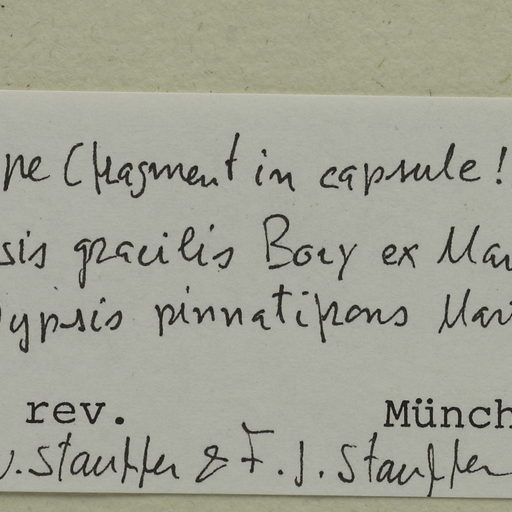 pe (fragment in capsule!
sis gracilis Bory ex Mar
ypsis pinnatifrons Mar
rev. Münch
. Stauffer & F. J. Stauffer